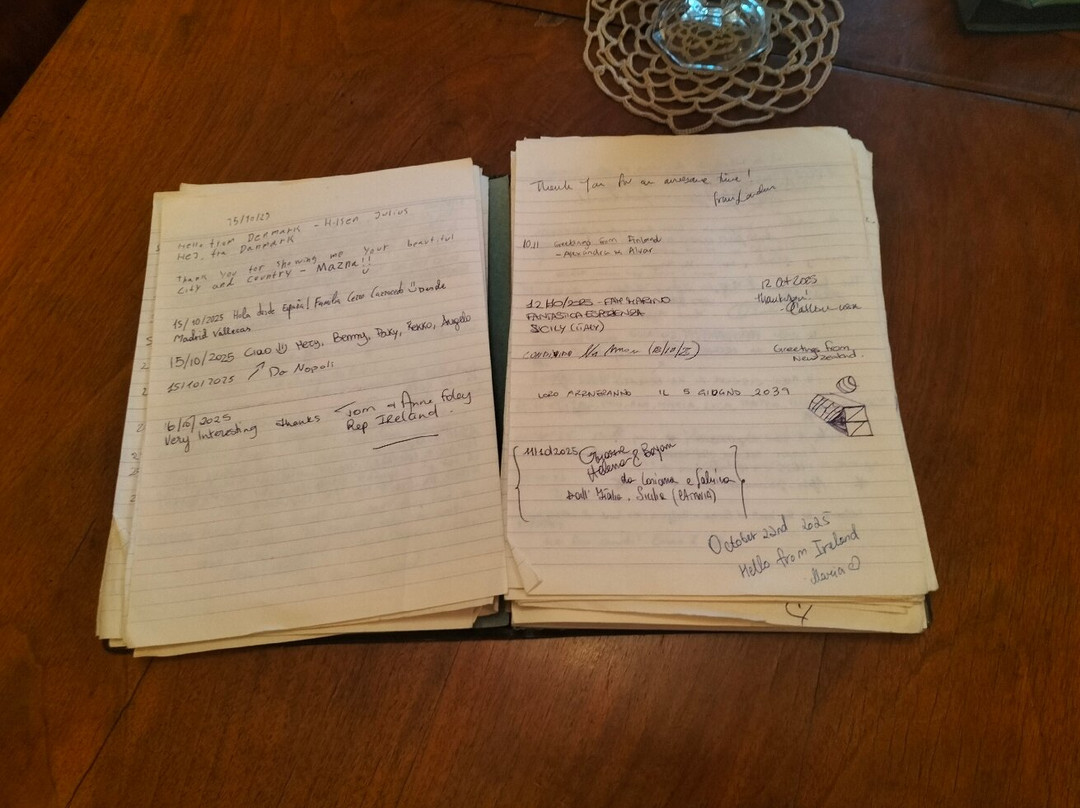 15/10/25
Hello from Denmark - Hilsen Julius
Hej, fra Danmark
Thank you for showing me your beautiful
City and country - Mazna!!
15/10/2025 Hola desde España/ Familia Desde
Madrid Vallecas
15/10/2025 Ciao Mery, Benny, Paky, Pekko, Angelo
15/10/2025 ↗ Da Napoli
16/10/2025
Very Interesting thanks Tom & Anne Foley
Rep Ireland.
Thank You for an awesome time!
from London
10.11 Greetings from Finland
- Alexandra & Alvar
12 Oct 2025
Thankyou!
12/10/2025 - SAN MARINO
FANTASTICA ESPERIENZA
SICILY (ITALY)
Greetings from
New Zealand.
LORO ARRIVERANNO IL 5 GIUGNO 2039
11/10/2025 Grazie
Helena & Bojan
da Loriana e
dall' Italia, Sicilia (CATANIA)
October 22nd 2025
Hello from Ireland
Maria